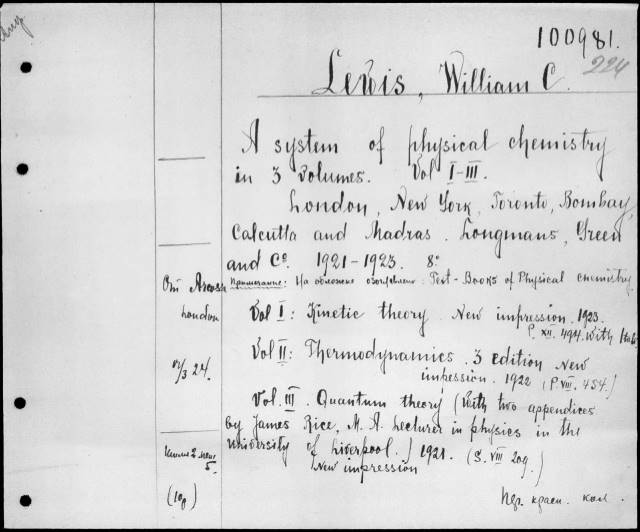 100981.
224
Lewis, William C.
A system of physical chemistry
in 3 volumes. Vol I-III.
London, New York, Toronto, Bombay,
Calcutta and Madras. Longmans, Green
and Co. 1921-1923. 8º
Примечание: На обложке озаглавлено: Text-Books of Physical chemistry.
London
Vol I: Kinetic theory. New impression. 1923.
P. XII, 494. with
Vol II: Thermodynamics. 3 edition New
impession. 1922 (P. VIII. 454.)
Vol. III. Quantum theory (with two appendices
by James Rice, M. A. Lecturer in physics in the
University of Liverpool.) 1921. (S. VIII 209.)
New impression
5.